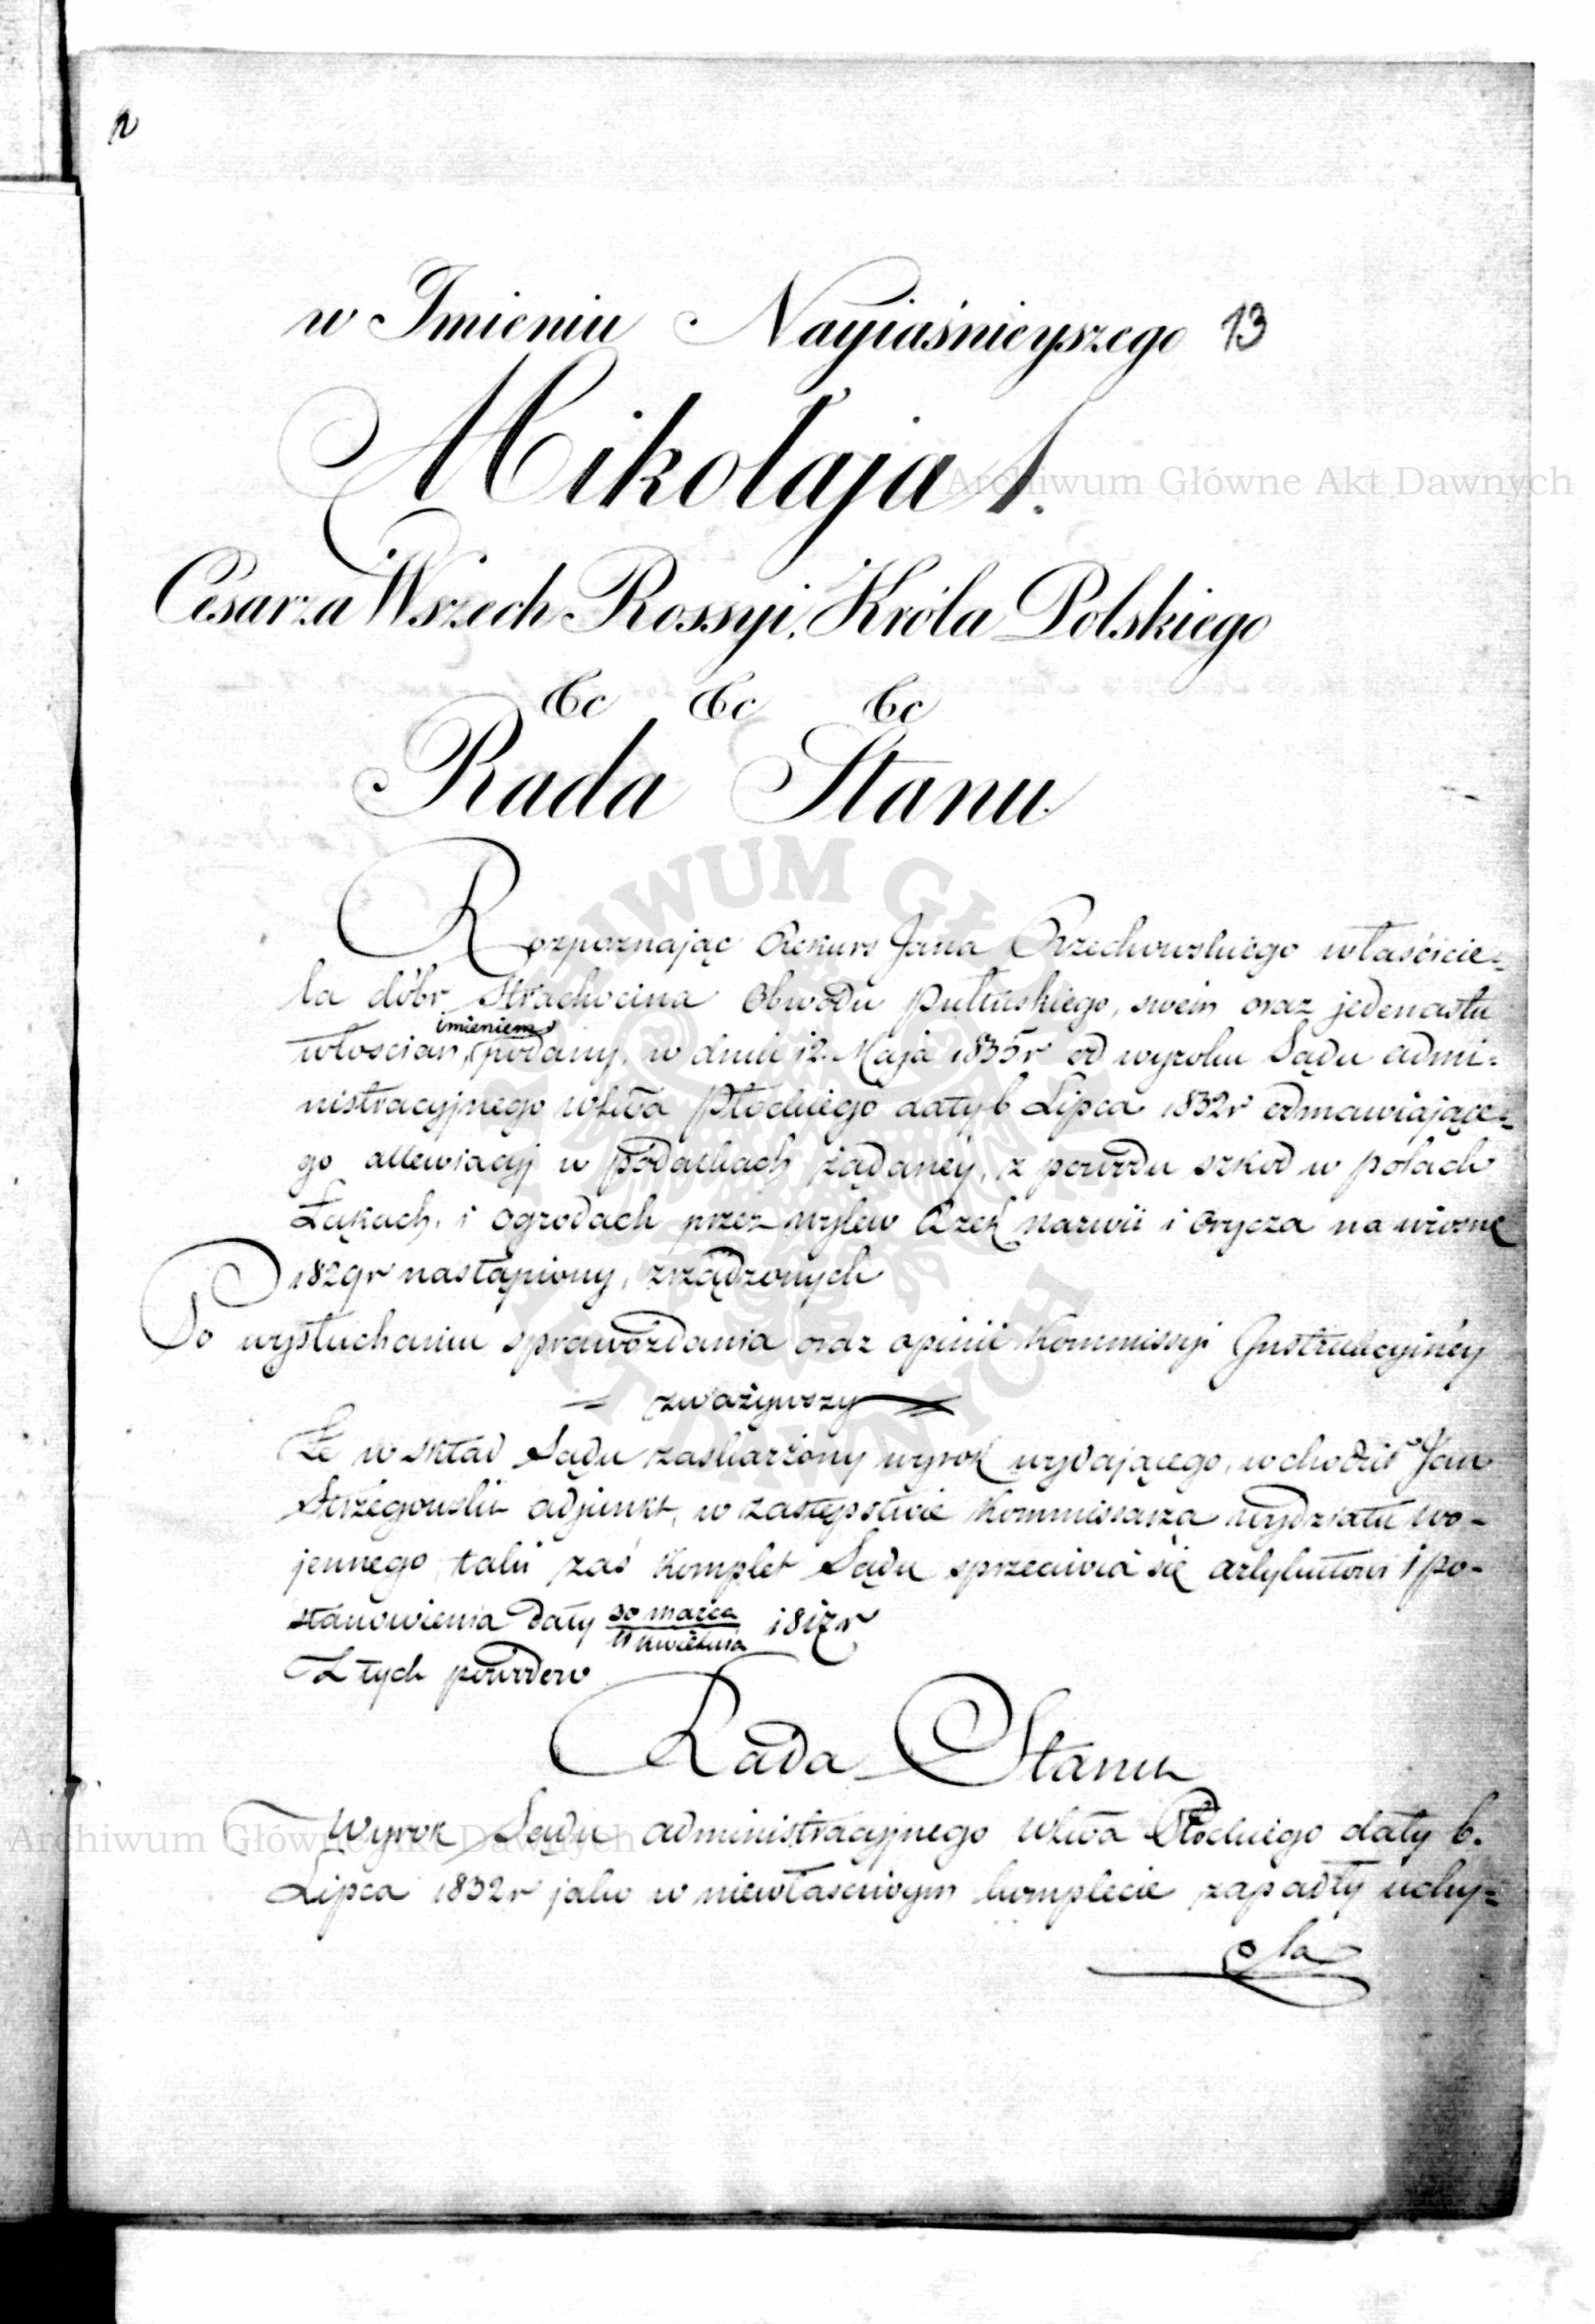 w Imieniu Nayiaśnieyszego 13
Mikołaja I.
Cesarza Wszech Rossyi, Króla Polskiego
&c &c &c
Rada Stanu
Rozpoznając Rekurs Jana Orzechowskiego właścicie=
la dóbr Strachocina Obwodu Pułtuskiego, swem oraz jedenastu
imieniem
włoscian, podany, w dniu 12. Maja 1835r od wyroku Sądu admi=
nistracyjnego wztwa Płockiego daty 6 Lipca 1832r odmawiające=
go allewiacyj w podatkach żądaney, z powodu szkod w polach
Łąkach, i ogrodach przez wylew Rzek narwii i orzyca na wiosnę
1829r nastąpiony, zrządzonych
Po wysłuchaniu sprawozdania oraz opinii Kommissyi Instrukcyiney
= zważywszy =
Że w skład Sądu zaskarżony wyrok wydającego, wchodził Jan
Strzegowski adjunkt, w zastępstwie Kommissarza wydziału wo-
jennego, taki zaś Komplet Sądu sprzeciwia się artykułowi 1 po-
stanowienia daty 30 marca / 11 kwietnia 1817r
Z tych powodow
Rada Stanu
Wyrok Sądu administracyjnego wztwa Płockiego daty 6.
Lipca 1832r jako w niewłasciwym komplecie zapadły uchy=
la
Archiwum Główne Akt Dawnych
Archiwum Główne Akt Dawnych
ARCHIWUM GŁÓWNE AKT DAWNYCH